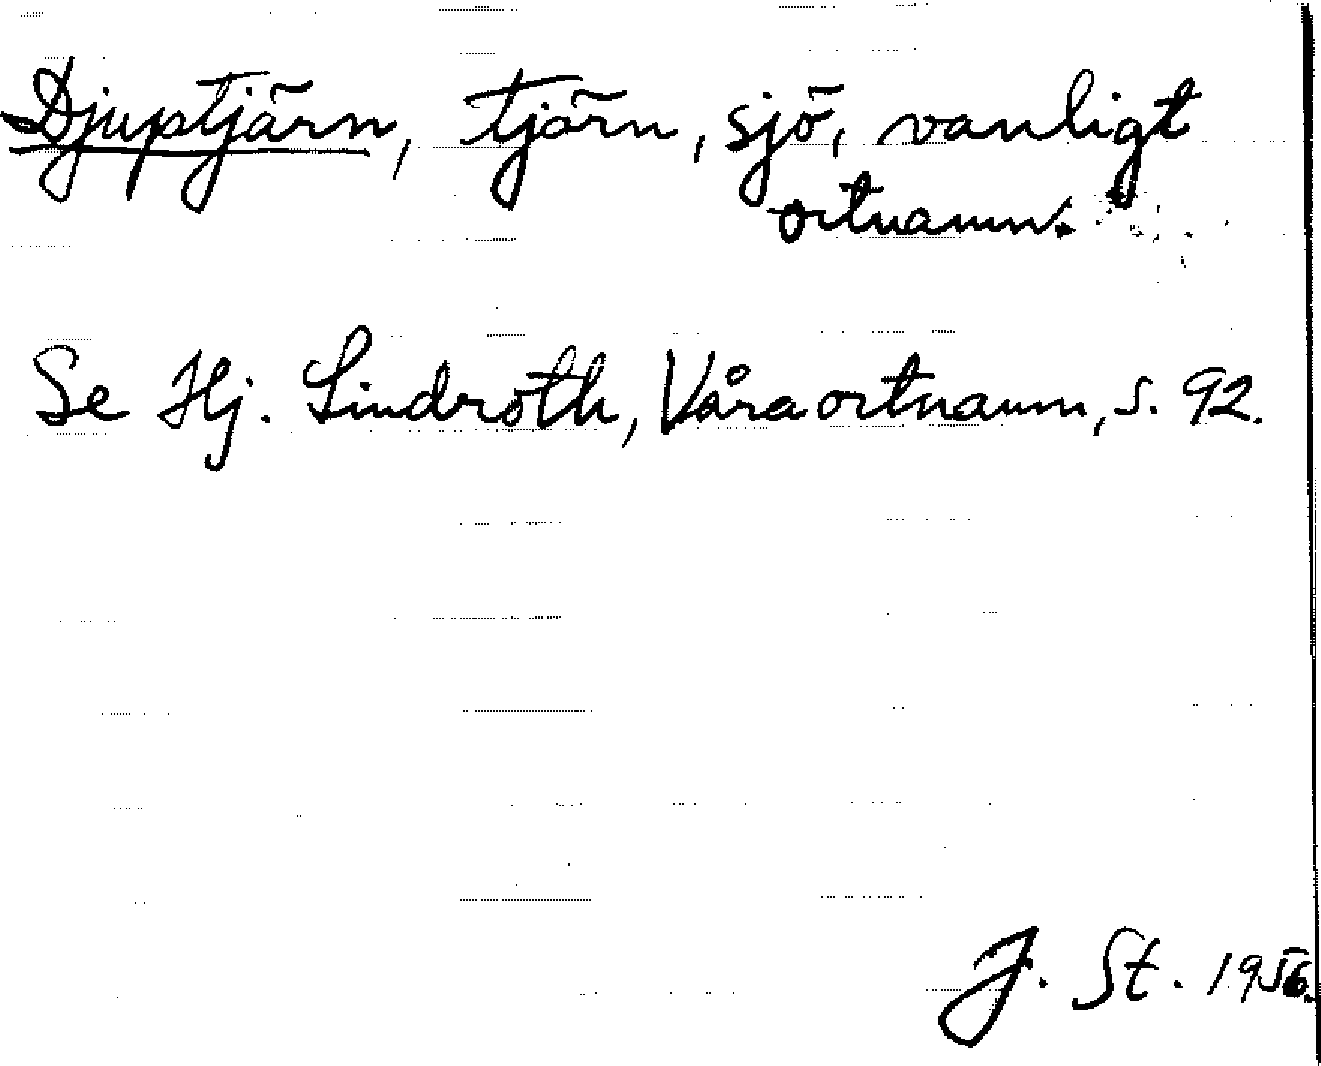 Djuptjärn, tjärn, sjö, vanligt
ortnamn.
Se Hj. Lindroth, Våra ortnamn, s. 92.
J. St. 1956.